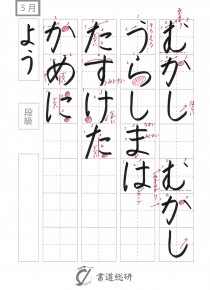 5月
むかし むかし
うらしまは
たすけた
かめに
よう
段級
書道総研